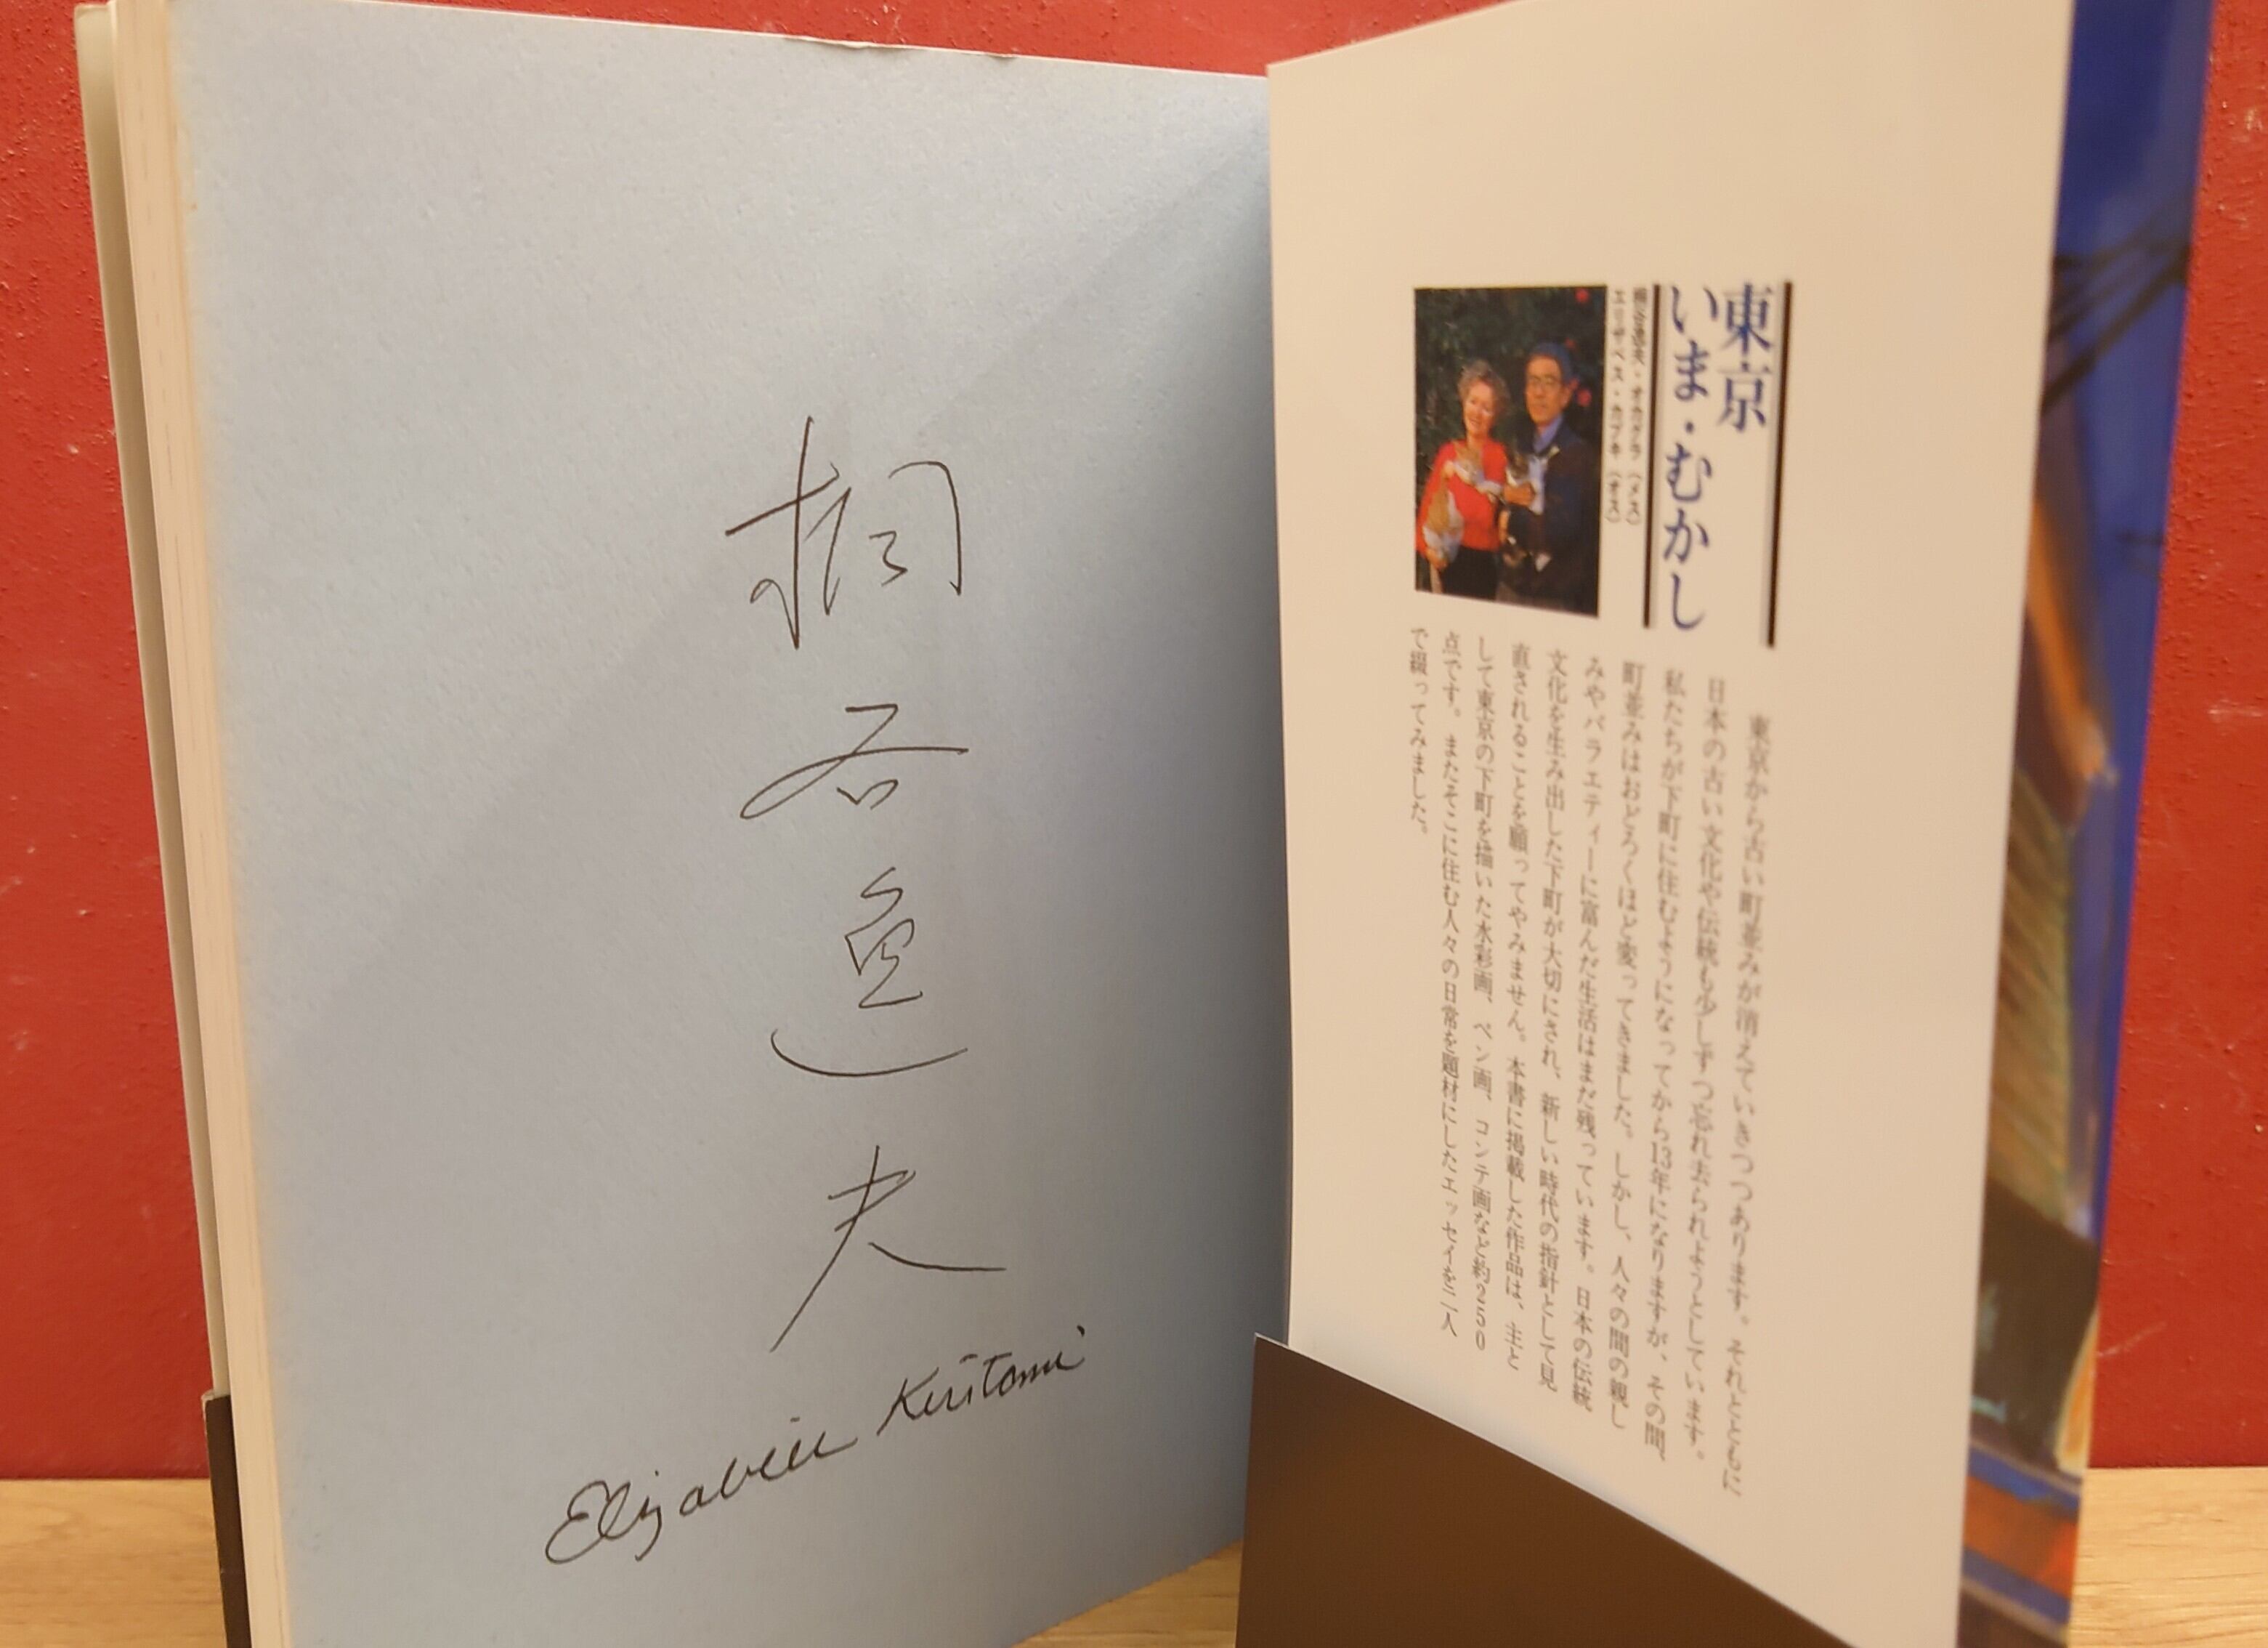 桐谷逸夫
Elizabeth Kiritani
東京
いま・むかし
桐谷逸夫・オカグラ（メス）
エリザベス・カブキ（オス）
東京から古い町並みが消えていきつつあります。それとともに
日本の古い文化や伝統も少しずつ忘れ去られようとしています。
私たちが下町に住むようになってから13年になりますが、その間、
町並みはおどろくほど変ってきました。しかし、人々の間の親し
みやバラエティーに富んだ生活はまだ残っています。日本の伝統
文化を生み出した下町が大切にされ、新しい時代の指針として見
直されることを願ってやみません。本書に掲載した作品は、主と
して東京の下町を描いた水彩画、ペン画、コンテ画など約250
点です。またそこに住む人々の日常を題材にしたエッセイを二人
で綴ってみました。